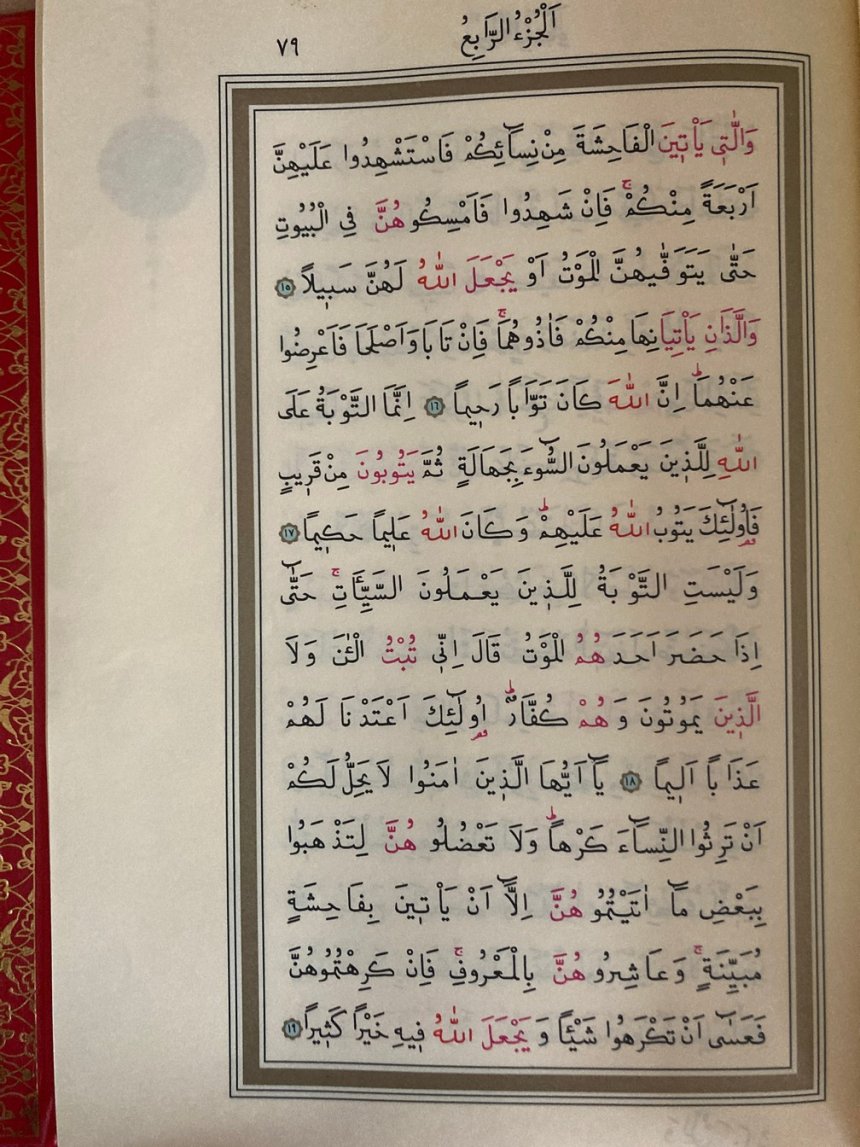 اَلْجُزْءُ الرَّابِعُ
٧٩
وَالّٰت۪ي يَأْت۪ينَ الْفَاحِشَةَ مِنْ نِسَٓائِكُمْ فَاسْتَشْهِدُوا عَلَيْهِنَّ
اَرْبَعَةً مِنْكُمْۚ فَاِنْ شَهِدُوا فَاَمْسِكُو هُنَّ فِي الْبُيُوتِ
حَتّٰى يَتَوَفّٰيهُنَّ الْمَوْتُ اَوْ يَجْعَلَ اللّٰهُ لَهُنَّ سَب۪يلاً ١٥
وَالَّذَانِ يَأْتِيَانِهَا مِنْكُمْ فَاٰذُوهُمَاۚ فَاِنْ تَابَا وَاَصْلَحَا فَاَعْرِضُوا
عَنْهُمَاۜ اِنَّ اللّٰهَ كَانَ تَوَّاباً رَح۪يماً ١٦ اِنَّمَا التَّوْبَةُ عَلَى
اللّٰهِ لِلَّذ۪ينَ يَعْمَلُونَ السُّٓوءَ بِجَهَالَةٍ ثُمَّ يَتُوبُونَ مِنْ قَر۪يبٍ
فَاُو۬لٰٓئِكَ يَتُوبُ اللّٰهُ عَلَيْهِمْۜ وَكَانَ اللّٰهُ عَل۪يماً حَك۪يماً ١٧
وَلَيْسَتِ التَّوْبَةُ لِلَّذ۪ينَ يَعْمَلُونَ السَّيِّـَٔاتِۚ حَتّٰٓى
اِذَا حَضَرَ اَحَدَ هُمُ الْمَوْتُ قَالَ اِنّ۪ي تُبْتُ الْـٰٔنَ وَلَا
الَّذ۪ينَ يَمُوتُونَ وَهُمْ كُفَّارٌۜ اُو۬لٰٓئِكَ اَعْتَدْنَا لَهُمْ
عَذَاباً اَل۪يماً ١٨ يَٓا اَيُّهَا الَّذ۪ينَ اٰمَنُوا لَا يَحِلُّ لَكُمْ
اَنْ تَرِثُوا النِّسَٓاءَ كَرْهاًۜ وَلَا تَعْضُلُو هُنَّ لِتَذْهَبُوا
بِبَعْضِ مَٓا اٰتَيْتُمُو هُنَّ اِلَّٓا اَنْ يَأْت۪ينَ بِفَاحِشَةٍ
مُبَيِّنَةٍۚ وَعَاشِرُو هُنَّ بِالْمَعْرُوفِۚ فَاِنْ كَرِهْتُمُوهُنَّ
فَعَسٰٓى اَنْ تَكْرَهُوا شَيْـٔاً وَ يَجْعَلَ اللّٰهُ ف۪يهِ خَيْراً كَث۪يراً ١٩